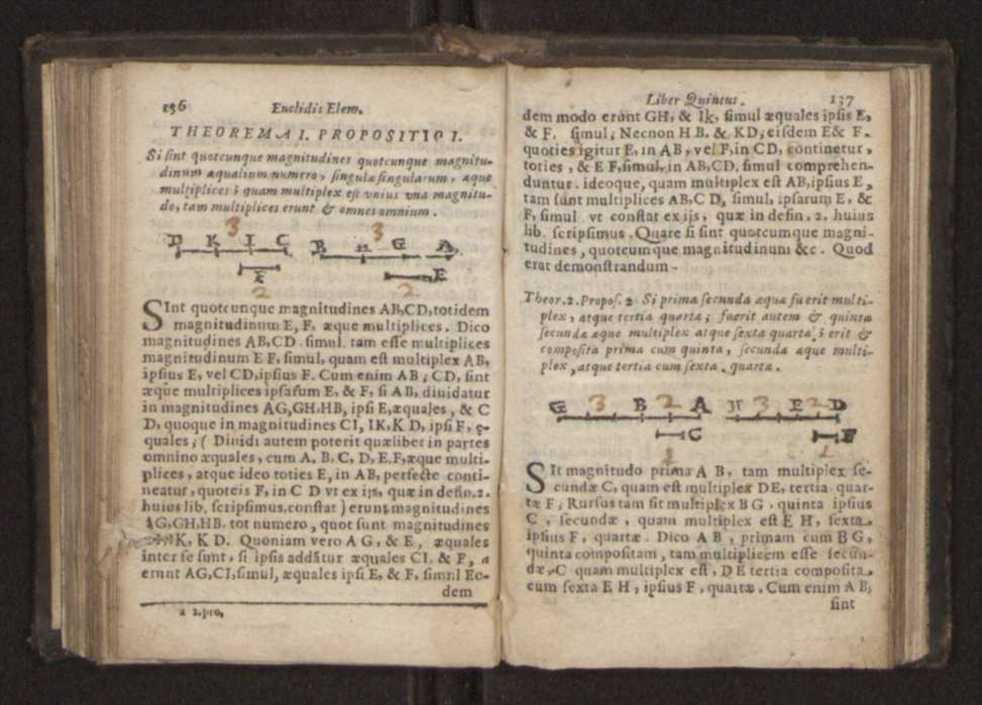 156 Euclidis Elem.
THEOREMA I. PROPOSITIO I.
Si sint quotcunque magnitudines quotcunque magnitu-
dinum æqualium numero, singulæ singularum, æque
multiplices; quam multiplex est vnius vna magnitu-
do, tam multiplices erunt & omnes omnium.
3 3
D K I C B H G A
E E
2 2
SInt quotcunque magnitudines AB,CD,totidem
magnitudinum E, F, æque multiplices. Dico
magnitudines AB,CD. simul. tam esse multiplices
magnitudinum E F, simul, quam est multiplex AB,
ipsius E, vel CD,ipsius F. Cum enim AB, CD, sint
æque multiplices ipsarum E, & F, si AB, diuidatur
in magnitudines AG,GH,HB, ipsi E,æquales, & C
D, quoque in magnitudines CI, IK,K D, ipsi F, ę-
quales, ( Diuidi autem poterit quælibet in partes
omnino æquales, cum A. B. C. D, E.F,æque multi-
plices, atque ideo toties E, in AB, perfecte conti-
neatur, quoteis F, in C D vt ex ijs, quæ in defin.2.
huius lib. scripsimus.constat ) erunt magnitudines
AG,GH,HB. tot numero, quot sunt magnitudines
IK, K D. Quoniam vero A G, & E, æquales
inter se sunt, si ipsis addãtur æquales CI. & F, a
erunt AG,CI,simul, æquales ipsi E, & F, simul Eo-
dem
a 2.pro,
Liber Quintus. 137
dem modo erunt GH, & Ik, simul æquales ipsis E,
& F, simul; Necnon H B. & KD, eisdem E& F.
quoties igitur E, in AB, vel F,in CD, continetur,
toties, & E F,simul,in AB,CD, simul comprehen-
duntur. ideoque, quam multiplex est AB,ipsius E,
tam sunt multiplices AB,C D, simul, ipsarum E, &
F, simul vt constat ex ijs, quæ in defin. 2. huius
lib. scripsimus. Quare si sint quotcumque magni-
tudines, quotcumque magnitudinum &c. Quod
erat demonstrandum.
Theor.2.Propos. 2. Si prima secunda æqua fuerit multi-
plex, atque tertia quarta; fuerit autem & quinta
secunda æque multiplex atque sexta quarta; erit &
composita prima cum quinta, secunda æque multi-
plex, atque tertia cum sexta, quarta.
G 3 B 2 A H 3 E 2 D
C F
1 1
SIt magnitudo prima A B, tam multiplex se-
cundæ C, quam est multiplex DE, tertia quar-
tæ F; Rursus tam sit multiplex B G, quinta ipsius
C, secundæ, quam multiplex est E H, sexta
ipsius F, quartæ. Dico A B, primam cum B G,
quinta compositam, tam multiplicem esse secun-
dæ, C quam multiplex est, D E tertia composita,
cum sexta E H, ipsius F, quartæ. Cum enim A B,
sint